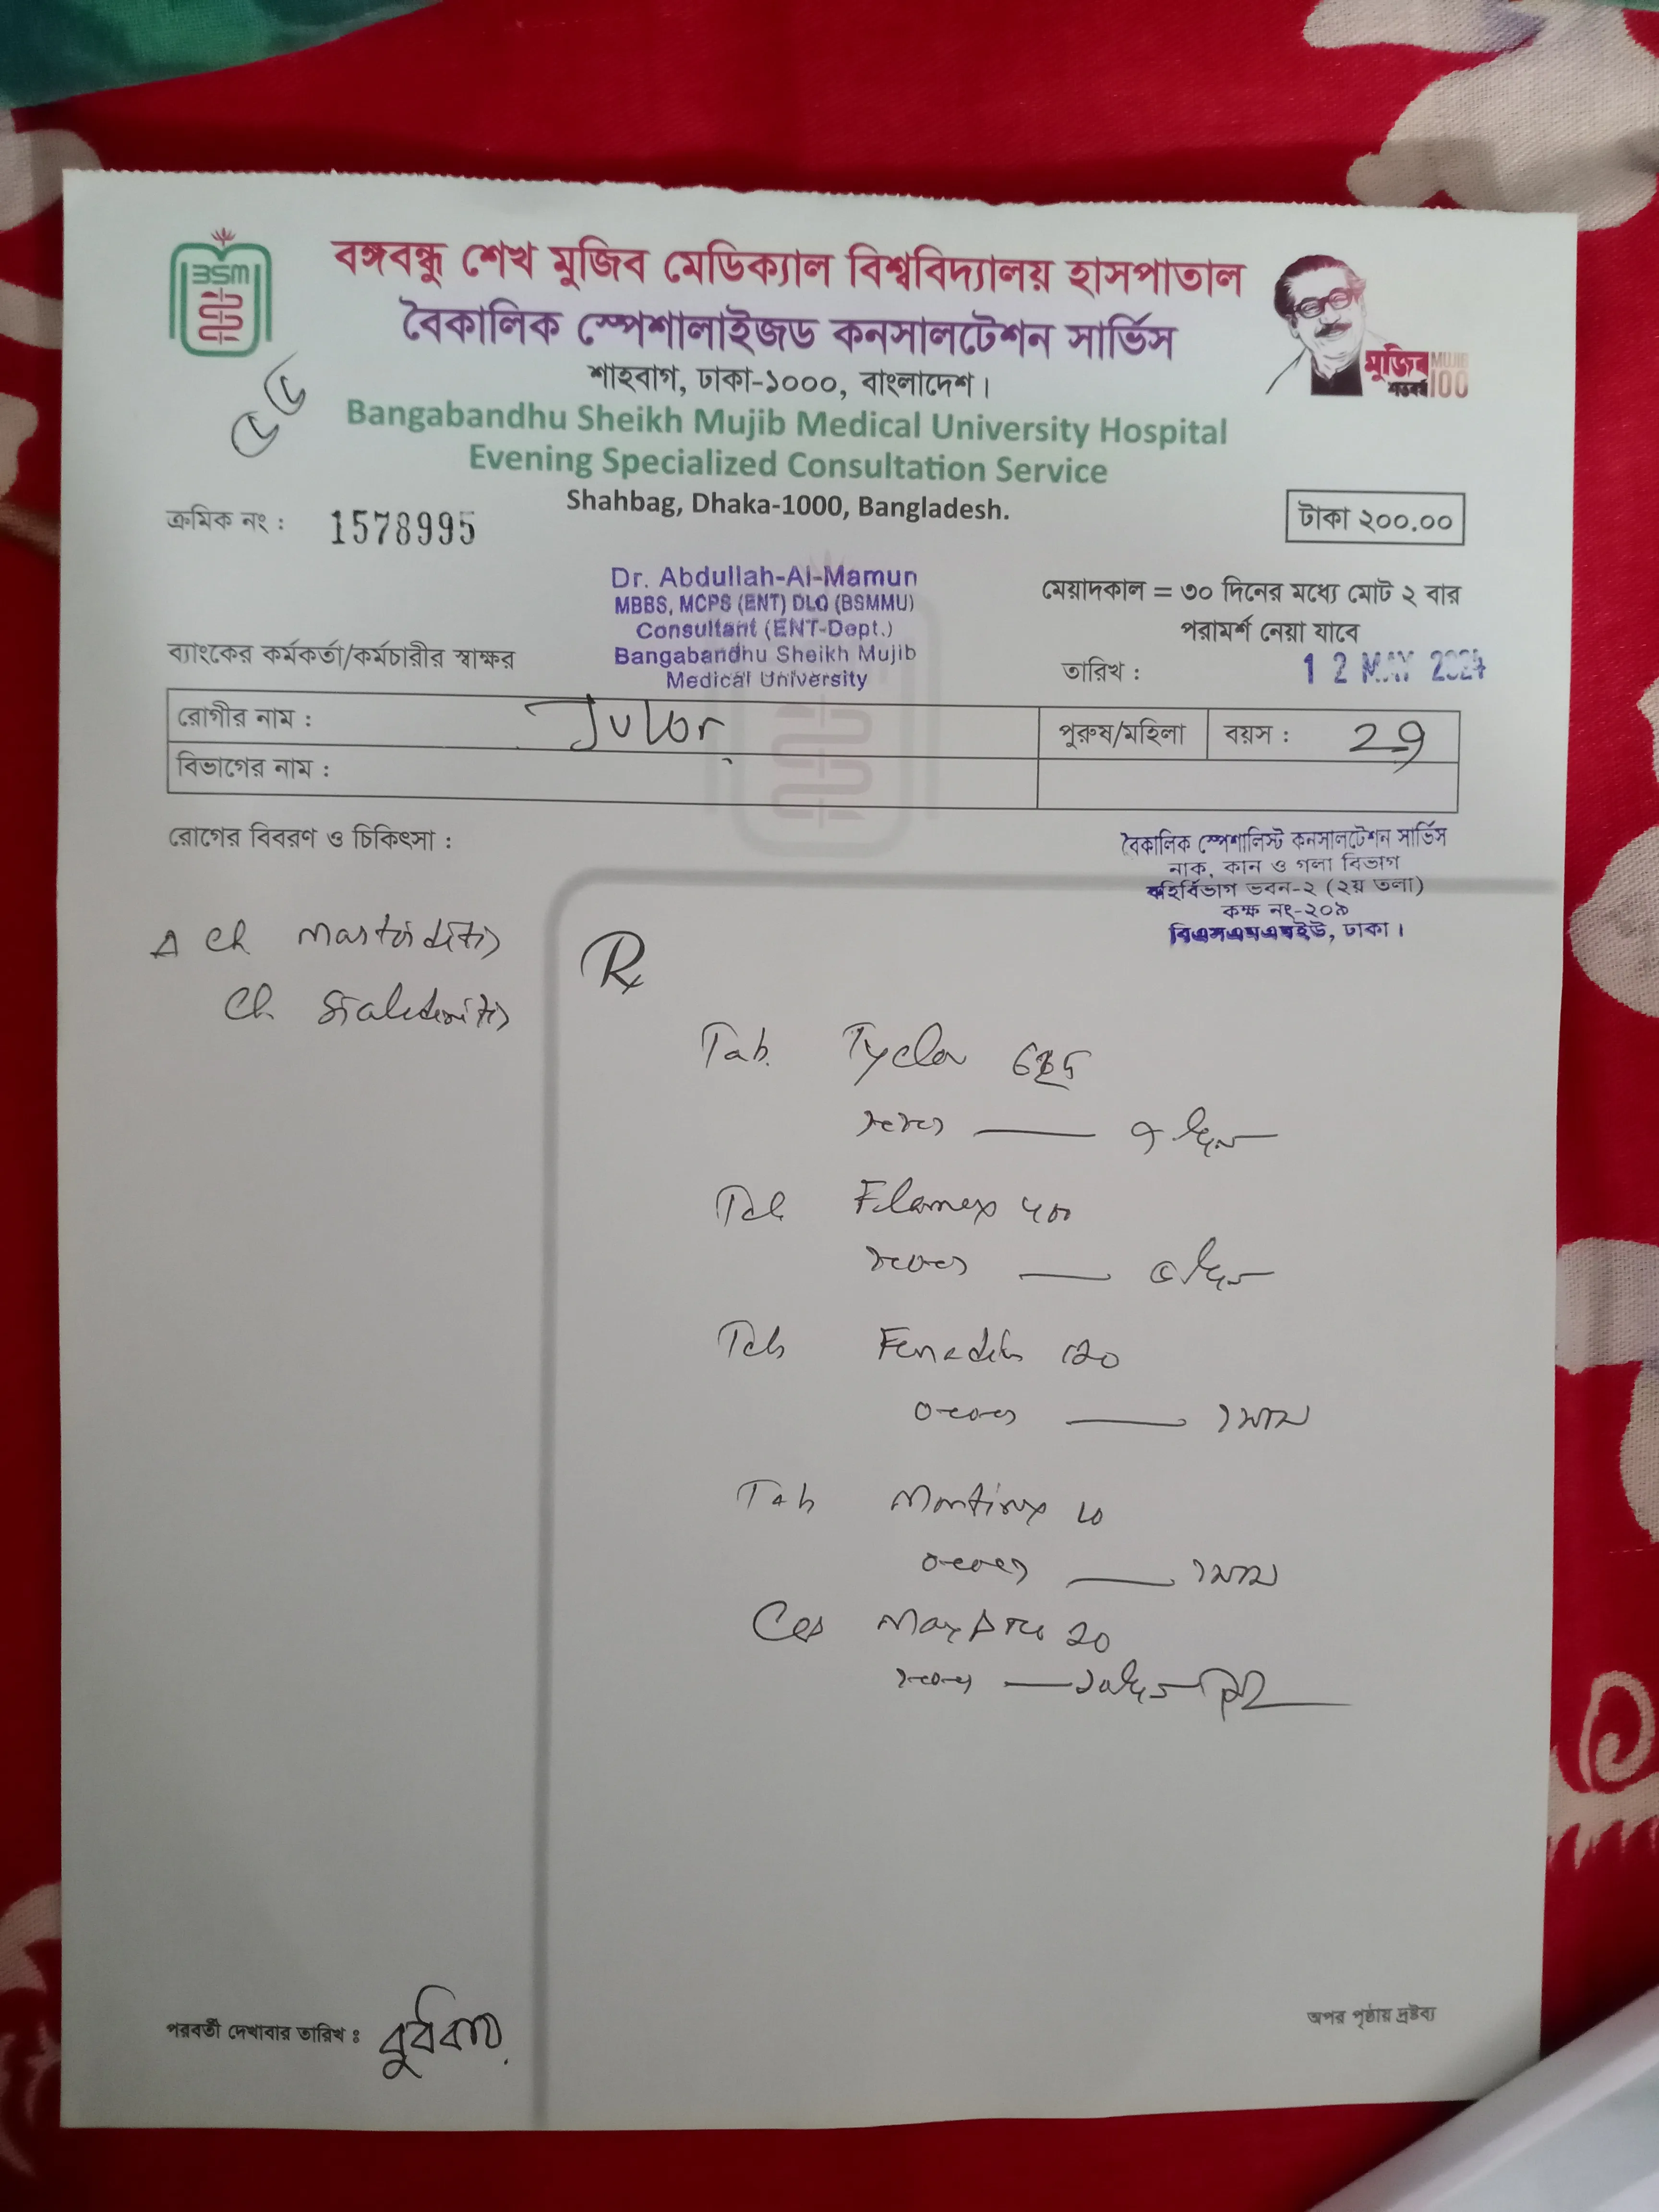 BSM
বঙ্গবন্ধু শেখ মুজিব মেডিক্যাল বিশ্ববিদ্যালয় হাসপাতাল
বৈকালিক স্পেশালাইজড কনসালটেশন সার্ভিস
শাহবাগ, ঢাকা-১০০০, বাংলাদেশ।
মুজিব MUJIB
শতবর্ষ 100
Bangabandhu Sheikh Mujib Medical University Hospital
Evening Specialized Consultation Service
Shahbag, Dhaka-1000, Bangladesh.
ক্রমিক নং : 1578995
টাকা ২০০.০০
Dr. Abdullah-Al-Mamun
MBBS, MCPS (ENT) DLO (BSMMU)
Consultant (ENT-Dept.)
Bangabandhu Sheikh Mujib
Medical University
মেয়াদকাল = ৩০ দিনের মধ্যে মোট ২ বার
পরামর্শ নেয়া যাবে
ব্যাংকের কর্মকর্তা/কর্মচারীর স্বাক্ষর
তারিখ : 12 MAY 2024
রোগীর নাম :
পুরুষ/মহিলা
বয়স : 29
বিভাগের নাম :
রোগের বিবরণ ও চিকিৎসা :
বৈকালিক স্পেশালিস্ট কনসালটেশন সার্ভিস
নাক, কান ও গলা বিভাগ
বহির্বিভাগ ভবন-২ (২য় তলা)
কক্ষ নং-২০৯
বিএসএমএমইউ, ঢাকা।
Δ Ch mastoiditis
Ch sialadenitis
Rx
Tab. Tyclav 625
Tab Filamex 400
Tab Fenadin 120
০+০+১ — ১মাস
Tab 10
০+০+১ — ১মাস
Cap Maxpro 20
পরবর্তী দেখাবার তারিখ ঃ বুধবার
অপর পৃষ্ঠায় দ্রষ্টব্য